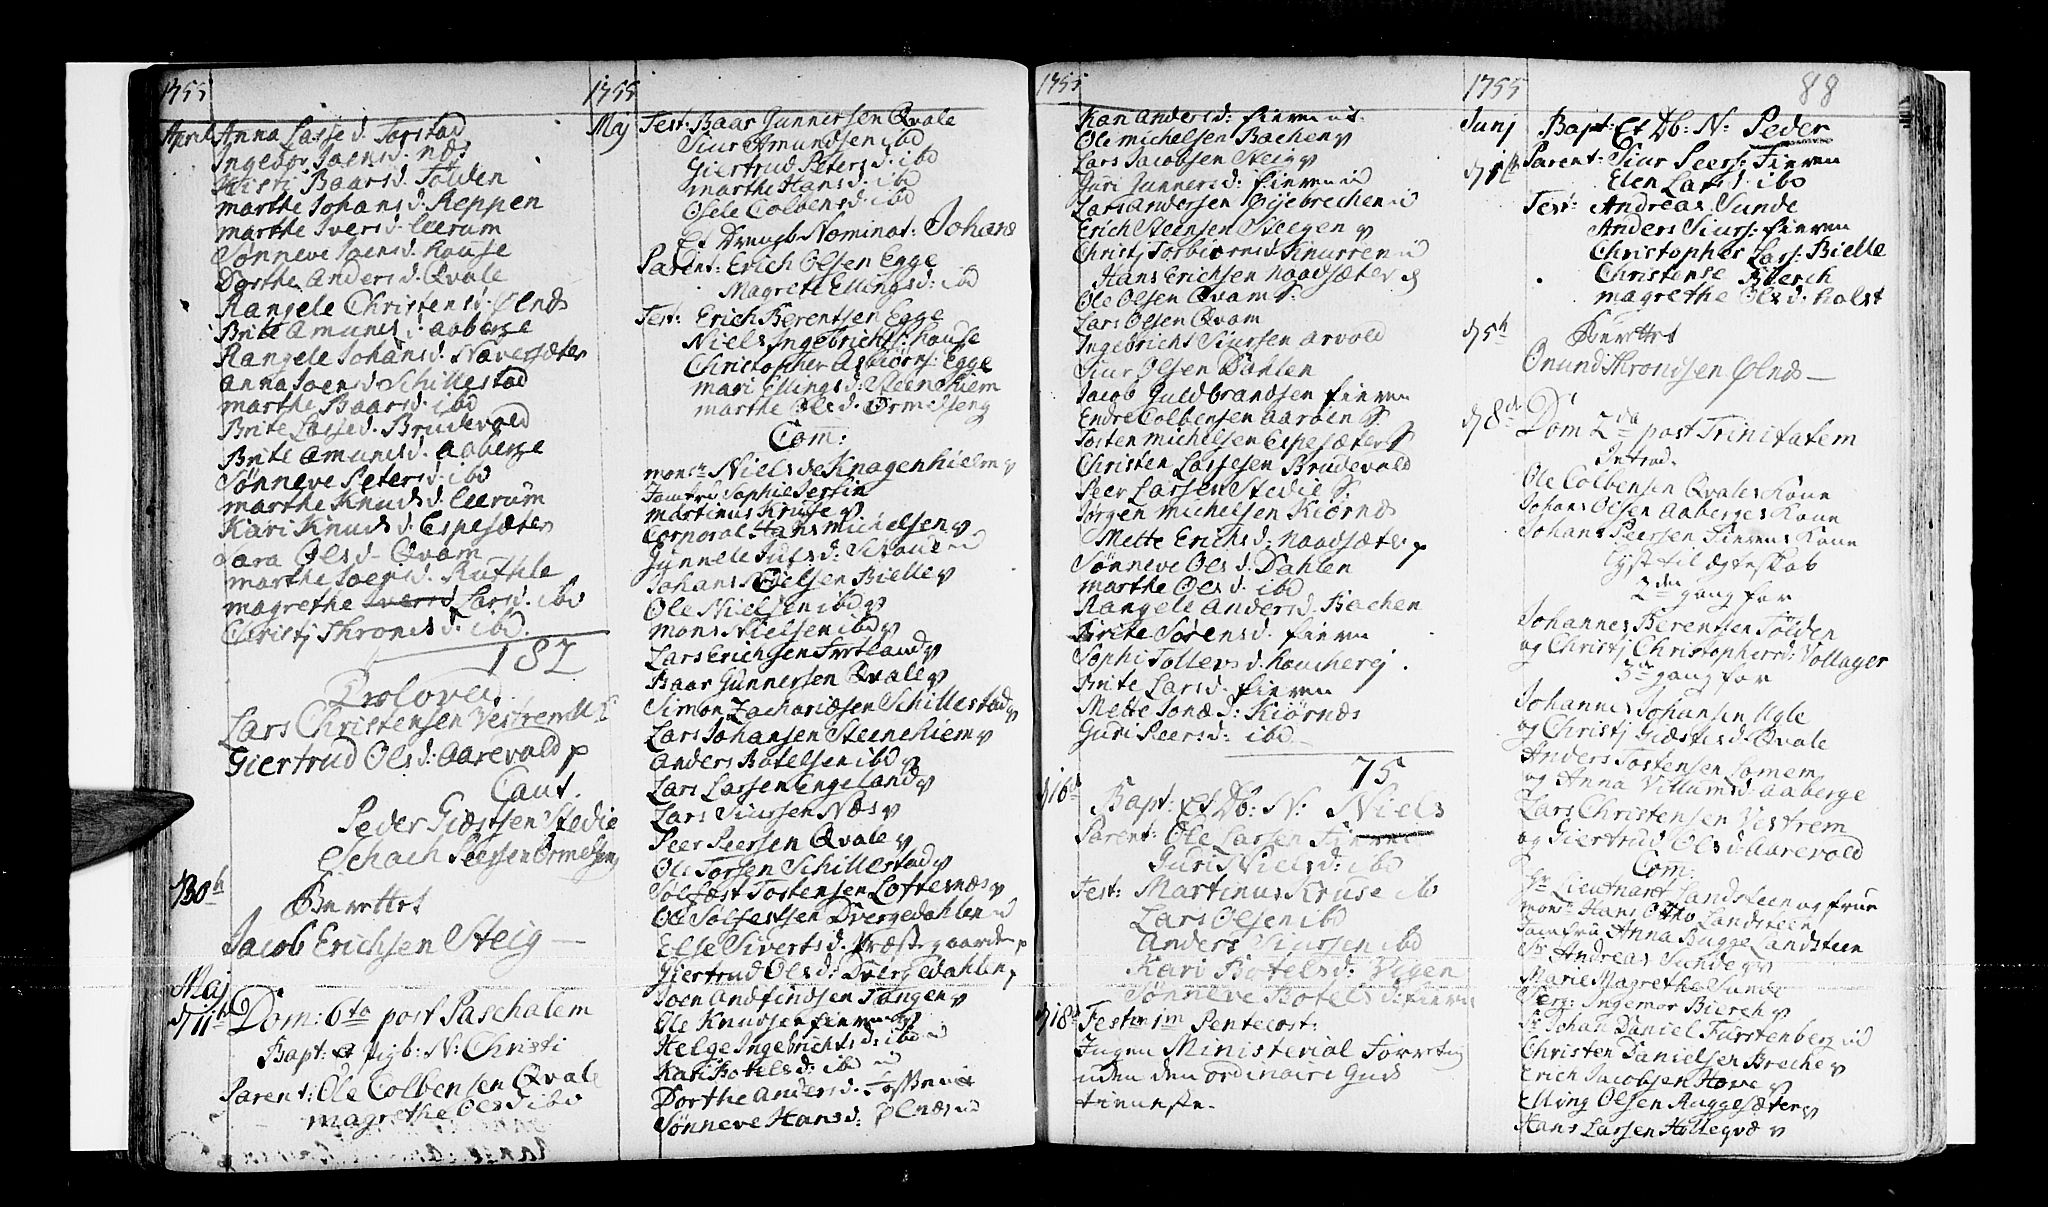 1755
April Anna Lassed. Torstad
Ingebor Joensd. Næs
Kistj Baarsd. Tolden
marthe Johansd. Reppen
marthe Iversd. Leerum
Sønneve Joensd. House
Dorthe Andersd. Qvale
Rangele Christensd. Ølnæs
Brite Amunds d. Aaberge
Rangele Johansd. Naversæter
Anna Joensd. Schillestad
marthe Baarsd. ibd
Brite Lassed. Brudevold
Brite Amundsd. Aaberge
Sønneve Petersd. ibd
marthe Knudsd. Leerum
Kari Knudsd. Espesæter
Sara Olsd. Qvam
marthe Joensd. Ruthle
magrethe Iversd Larsd. ibd
Christj Thronesd. ibd.
182
Trolover
Lars Christensen Vestrem
Giertrud Olsd: Aarevold
Caut.
Peder Giæstsen Stedie
Schach Peersen Ormelsen
d 30h Berettet
Jacob Erichsen Steig —
Maj
d 11h Dom: 6to post Paschalem
Bapt: et pigb: N: Christi
Parent: Ole Colbensen Qvale
magrethe Olsd ibd
1755
Maj Test: Baar Gunnersen Qvale
Siur Amundsen ibd
Giertrud Petersd. ibd
marthe Hansd. ibd
Osele Colbensd. ibd
Et Drengb. Nominat: Johans
Parent: Erich Olsen Egge
Magrete Ellingsd: ibd
Test: Erich Berentsen Egge
Niels Ingebrichts: House
Christopher Asbiørns: Egge
mari Ellingsd: Steenehiem
marthe Olsd. Ormelseng
Com:
monsr Niels de Knagenhielm
Jomfrd Sophie Jersin
martinus Kruse
Corporal Hans Michelsen
Gunnele Jufsd: Schoue
Johans Nielsen Bielle
Ole Nielsen ibd
mons Nielsen ibd
Lars Erichsen Fortland
Baar Gunnersen Qvale
Simon Zachariæsen Schillestad
Lars Johansen Steenehiem
Anders Botelsen ibd
Lars Larsen Engeland
Lars Siursen Næs
Peer Peersen Qvale
Ole Torsen Schillestad
Solfæst Tostensen Loftesnæs
Ole Solfestsen Dvergedahlen
Else Sivertsd. Præstegaarden
Giertrud Olsd: Dvergedahlen
Joen Andfindsen Tangen
Ole Knudsen fieren
Helge Ingebrichtsd: ibd
Kari Botelsd: ibd
Dorthe Andersd.
Sønneve Hansd: Ølnæs
1755
Kari Andersd: fieren
Ole michelsen Bachen
Lars Jacobsen Steig
Guri Gunnersd: fieren
Lars Andersen
Erich Steensen Skeegen
Christj Torbiørnsd Knurren
Hans Erichsen Naadsæter
Ole Olsen Qvam
Lars Olsen Qvam
Ingebricht Siursen Arvold
Siur Olsen Dahlen
Jacob Guldbrandsen fieren
Endre Colbensen Aarøen
Tosten michelsen Espesæter
Christen Lassesen Brudevold
Peer Larsen Stedie
Jørgen Michelsen Kiørnæs
Mette Erichsd: Naadsæter
Sønneve Olsd. Dahlen
marthe Olsd. ibd
Rangele Andersd. Bachen
Brite Sørensd. fieren
Sophi Tollevsd. Houcherej
Brite Larsd. fieren
Mette Jonæd: Kiørnæs
Guri Peersd: ibd —
75
d 16h Bapt: et Db: N: Niels
Parent: Ole Larsen Fieren
Guri Nielsd: ibd
Test: Martinus Kruse ibd
Lars Olsen ibd
Anders Siursen ibd
Kari Botelsd: Vigen
Sønneve Botelsd: fieren
d 18h Festm 1m Pentecost:
Ingen Ministerial Forretning
uden den ordinaire Guds
tieneste.
1755 88
Junj Bapt: Et Db: N: Peder
d 1ste Parent: Siur Peers: Fieren
Elen Larsd: ibd
Test: Andreas Sunde
Anders Siurs: fieren
Christopher Lars: Bielle
Christense Bierch
magrethe Olsd: Holst
d 5h Berettet
Onund Thronsen Ølnæs —
d 8de Dom 2da post Trinitatem
Introd.
Ole Colbensen Qvales Kone
Johans Olsen Aaberges Kone
Johans Peersen Fierens Kone
lyst til ægteskab
2den gang for
Johannes Berentsen Tolden
og Christj Christophersd. Vollager
3de gang for
Johannes Johansen Ugle
og Christj Giæstsd. Qvale
Anders Tostensen Lomem
og Anna Villumsd. Aaberge
Lars Christensen Vestrem
og Giertrud Olsd: Aarevold
Com:
Hr Lieutnant Landsteen og frue
monsr Hans Otto Landsteen
Jomfru Anna Bugge Landsteen
Sr Andreas Sunde
Marie Magrethe Sunde
Serg: Ingemor Bierch
Sr Johan Daniel Furstenberg
Christen Danielsen Breche
Erich Jacobsen Hove
Elling Olsen Ruggesæter
Hans Larsen Holleqvæ